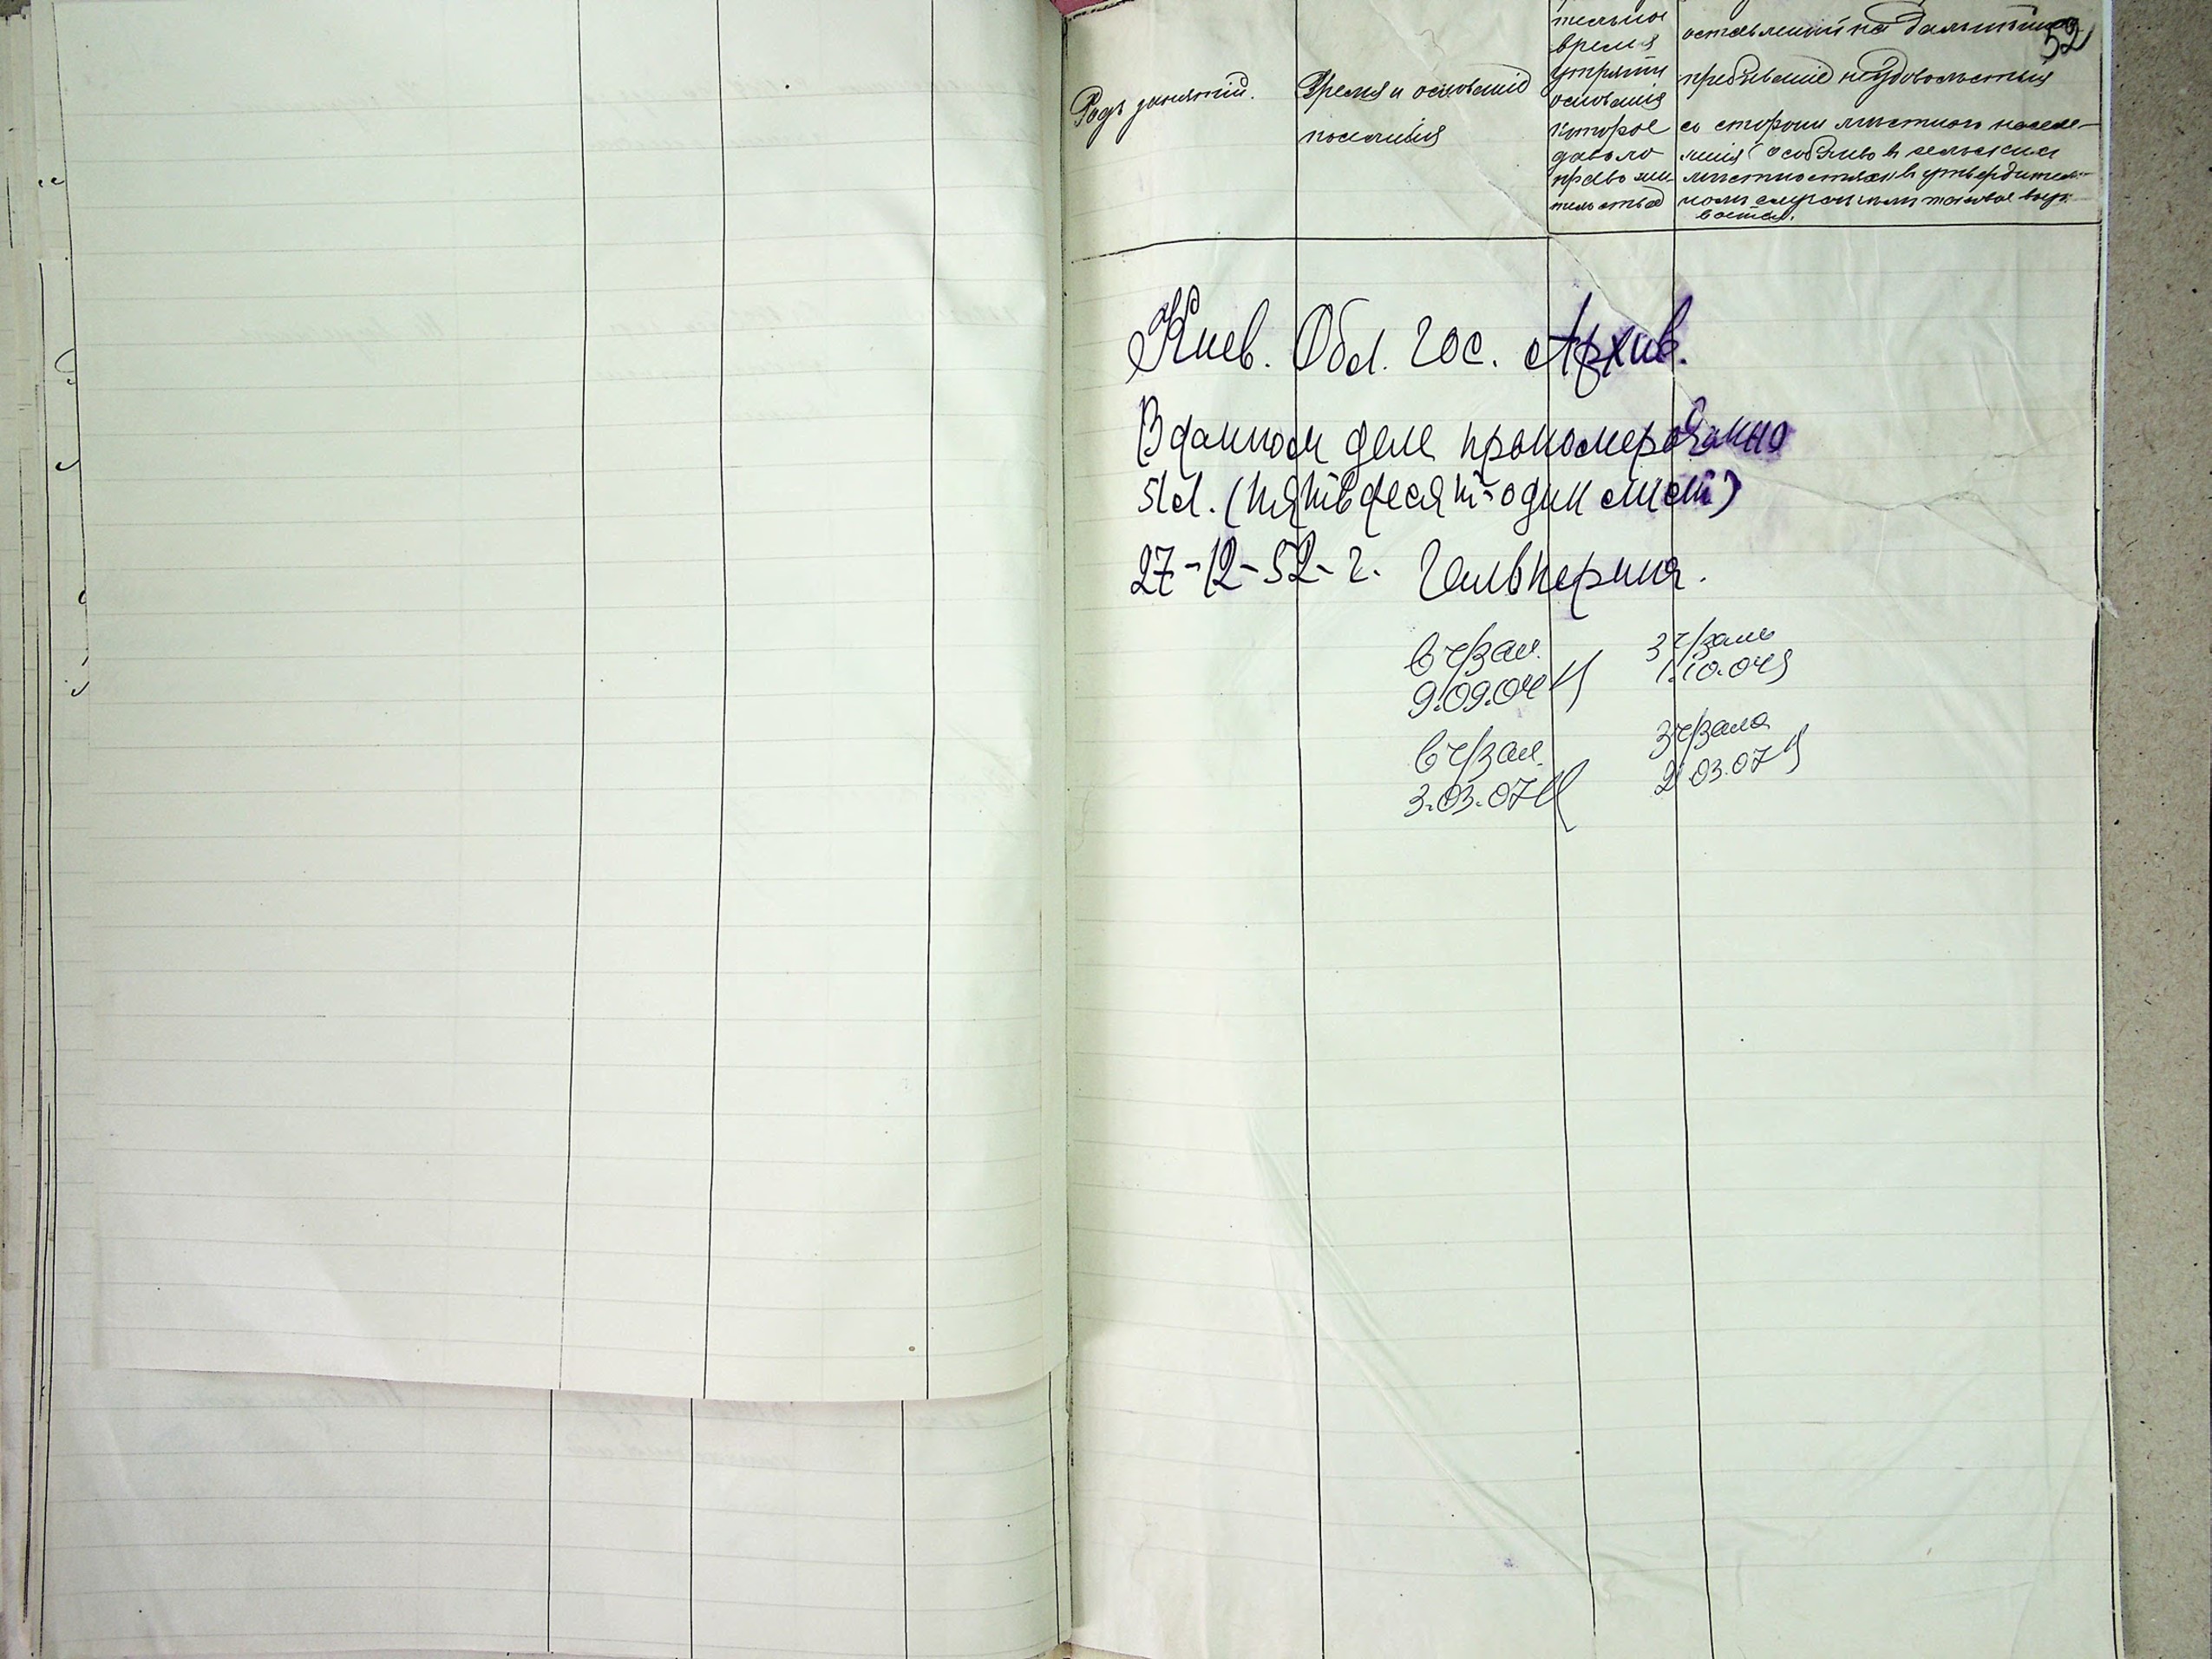 52
Родъ занятій.
Время и основаніе
поселенія
тельное
время
утраты
основанія
которое
давало
право жи-
тельства
оставленій на дальнѣйшее
пребываніе неудовольствія
со стороны мѣстнаго населе-
нія (особливо въ сельскихъ
мѣстностяхъ) въ утвердитель-
номъ случаѣ чѣмъ таковое выз-
вается.
Киев. Обл. Гос. Архив.
В данном деле прономеровано
51 л. (пятьдесят-один лист)
27-12-52-г. Гальперина.
в ч/зал.
9.09.04
З ч/залы
1.10.04
в ч/зал.
3.03.07
З ч/зала
2 03.07